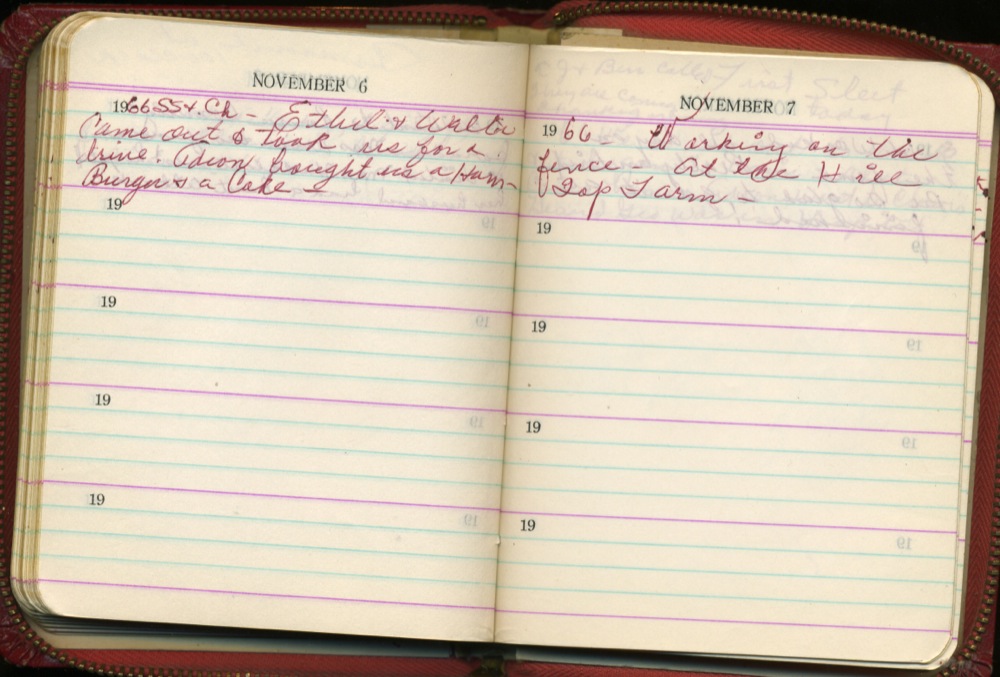 NOVEMBER 6
1966 SS & Ch - Ethel & Walter
Came out & took us for a
drive. bought us a Ham-
Burger & a Coke -
19
19
19
19
NOVEMBER 7
1966 - Working on the
fence - at the Hill
Top Farm -
19
19
19
19